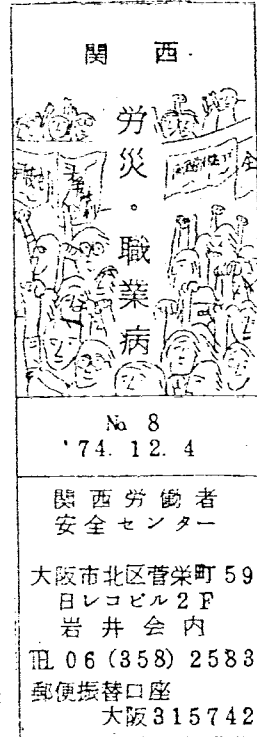 関西
労災・職業病
No. 8
'74.12.4
関西労働者
安全センター
大阪市北区菅栄町59
日レコビル2F
岩井会内
TEL 06(358)2583
郵便振替口座
大阪315742